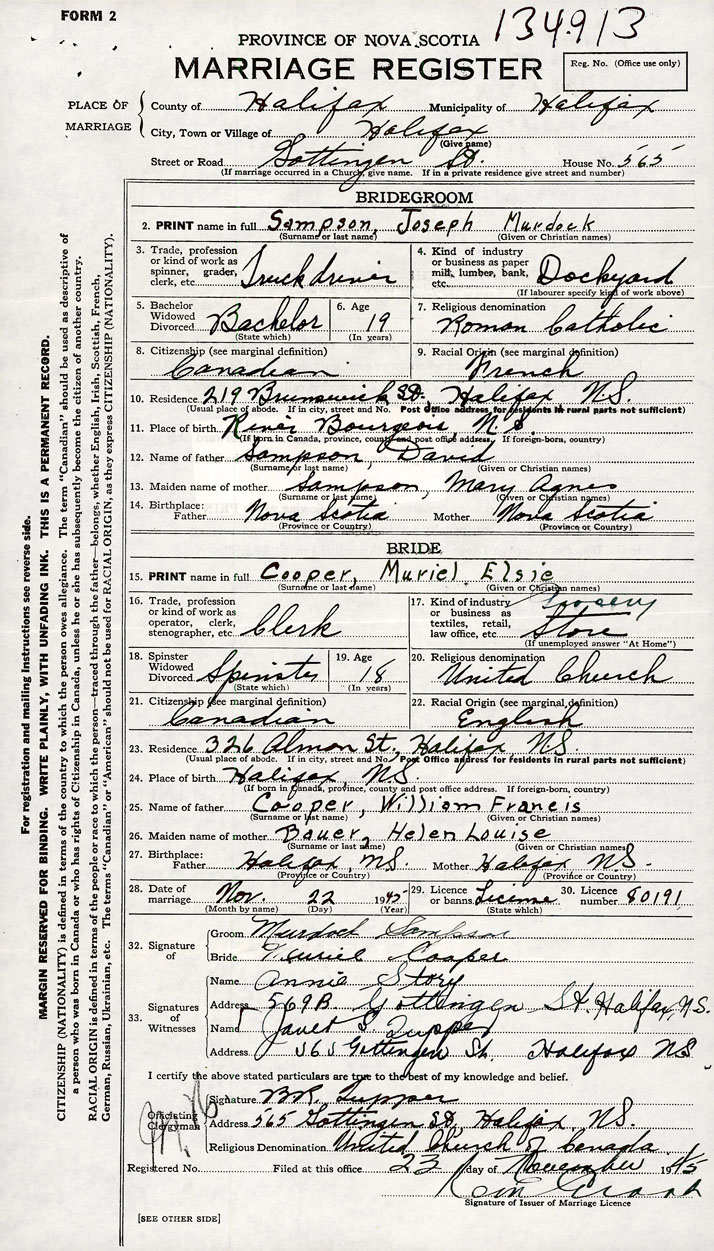 FORM 2
134913
PROVINCE OF NOVA SCOTIA
MARRIAGE REGISTER
Reg. No. (Office use only)
PLACE OF MARRIAGE
County of Halifax Municipality of Halifax
City, Town or Village of Halifax
(Give name)
Street or Road Gottingen St. House No. 565
(If marriage occurred in a Church, give name. If in a private residence give street and number)
BRIDEGROOM
2. PRINT name in full Sampson, Joseph Murdock
(Surname or last name) (Given or Christian names)
3. Trade, profession or kind of work as spinner, grader, clerk, etc. Truckdriver
4. Kind of industry or business as paper mill, lumber, bank, etc. Dockyard
(If labourer specify kind of work above)
5. Bachelor Widowed Divorced Bachelor (State which)
6. Age 19 (In years)
7. Religious denomination Roman Catholic
8. Citizenship (see marginal definition) Canadian
9. Racial Origin (see marginal definition) French
10. Residence 219 Brunswick St. Halifax N.S.
(Usual place of abode. If in city, street and No. Post Office address for residents in rural parts not sufficient)
11. Place of birth River Bourgeois, N.S.
(If born in Canada, province, county and post office address. If foreign-born, country)
12. Name of father Sampson, David
(Surname or last name) (Given or Christian names)
13. Maiden name of mother Sampson, Mary Agnes
(Surname or last name) (Given or Christian names)
14. Birthplace: Father Nova Scotia Mother Nova Scotia
(Province or Country) (Province or Country)
BRIDE
15. PRINT name in full Cooper, Muriel Elsie
(Surname or last name) (Given or Christian names)
16. Trade, profession or kind of work as operator, clerk, stenographer, etc. Clerk
17. Kind of industry or business as textiles, retail, law office, etc. Grocery Store
(If unemployed answer "At Home")
18. Spinster Widowed Divorced Spinster (State which)
19. Age 18 (In years)
20. Religious denomination United Church
21. Citizenship (see marginal definition) Canadian
22. Racial Origin (see marginal definition) English
23. Residence 326 Almon St., Halifax N.S.
(Usual place of abode. If in city, street and No. Post Office address for residents in rural parts not sufficient)
24. Place of birth Halifax, N.S.
(If born in Canada, province, county and post office address. If foreign-born, country)
25. Name of father Cooper, William Francis
(Surname or last name) (Given or Christian names)
26. Maiden name of mother Bauer, Helen Louise
(Surname or last name) (Given or Christian names)
27. Birthplace: Father Halifax, N.S. Mother Halifax N.S.
(Province or Country) (Province or Country)
28. Date of marriage Nov. 22 1945
(Month by name) (Day) (Year)
29. Licence or banns License (State which)
30. Licence number 80191
32. Signature of
Groom Murdock Sampson
Bride Muriel Cooper
33. Signatures of Witnesses
Name Annie Story
Address 569B Gottingen St. Halifax, N.S.
Name Janet S. Tupper
Address 565 Gottingen St. Halifax N.S.
I certify the above stated particulars are true to the best of my knowledge and belief.
Officiating Clergyman
Signature B.R. Tupper
Address 565 Gottingen St. Halifax N.S.
Religious Denomination United Church of Canada
Registered No. Filed at this office 23 day of November 1945
Signature of Issuer of Marriage Licence
[SEE OTHER SIDE]
For registration and mailing instructions see reverse side.
MARGIN RESERVED FOR BINDING. WRITE PLAINLY, WITH UNFADING INK. THIS IS A PERMANENT RECORD.
CITIZENSHIP (NATIONALITY) is defined in terms of the country to which the person owes allegiance. The term "Canadian" should be used as descriptive of
a person who was born in Canada or who has rights of Citizenship in Canada, unless he or she has subsequently become the citizen of another country.
RACIAL ORIGIN is defined in terms of the people or race to which the person—traced through the father—belongs, whether English, Irish, Scottish, French,
German, Russian, Ukrainian, etc. The terms "Canadian" or "American" should not be used for RACIAL ORIGIN, as they express CITIZENSHIP (NATIONALITY).